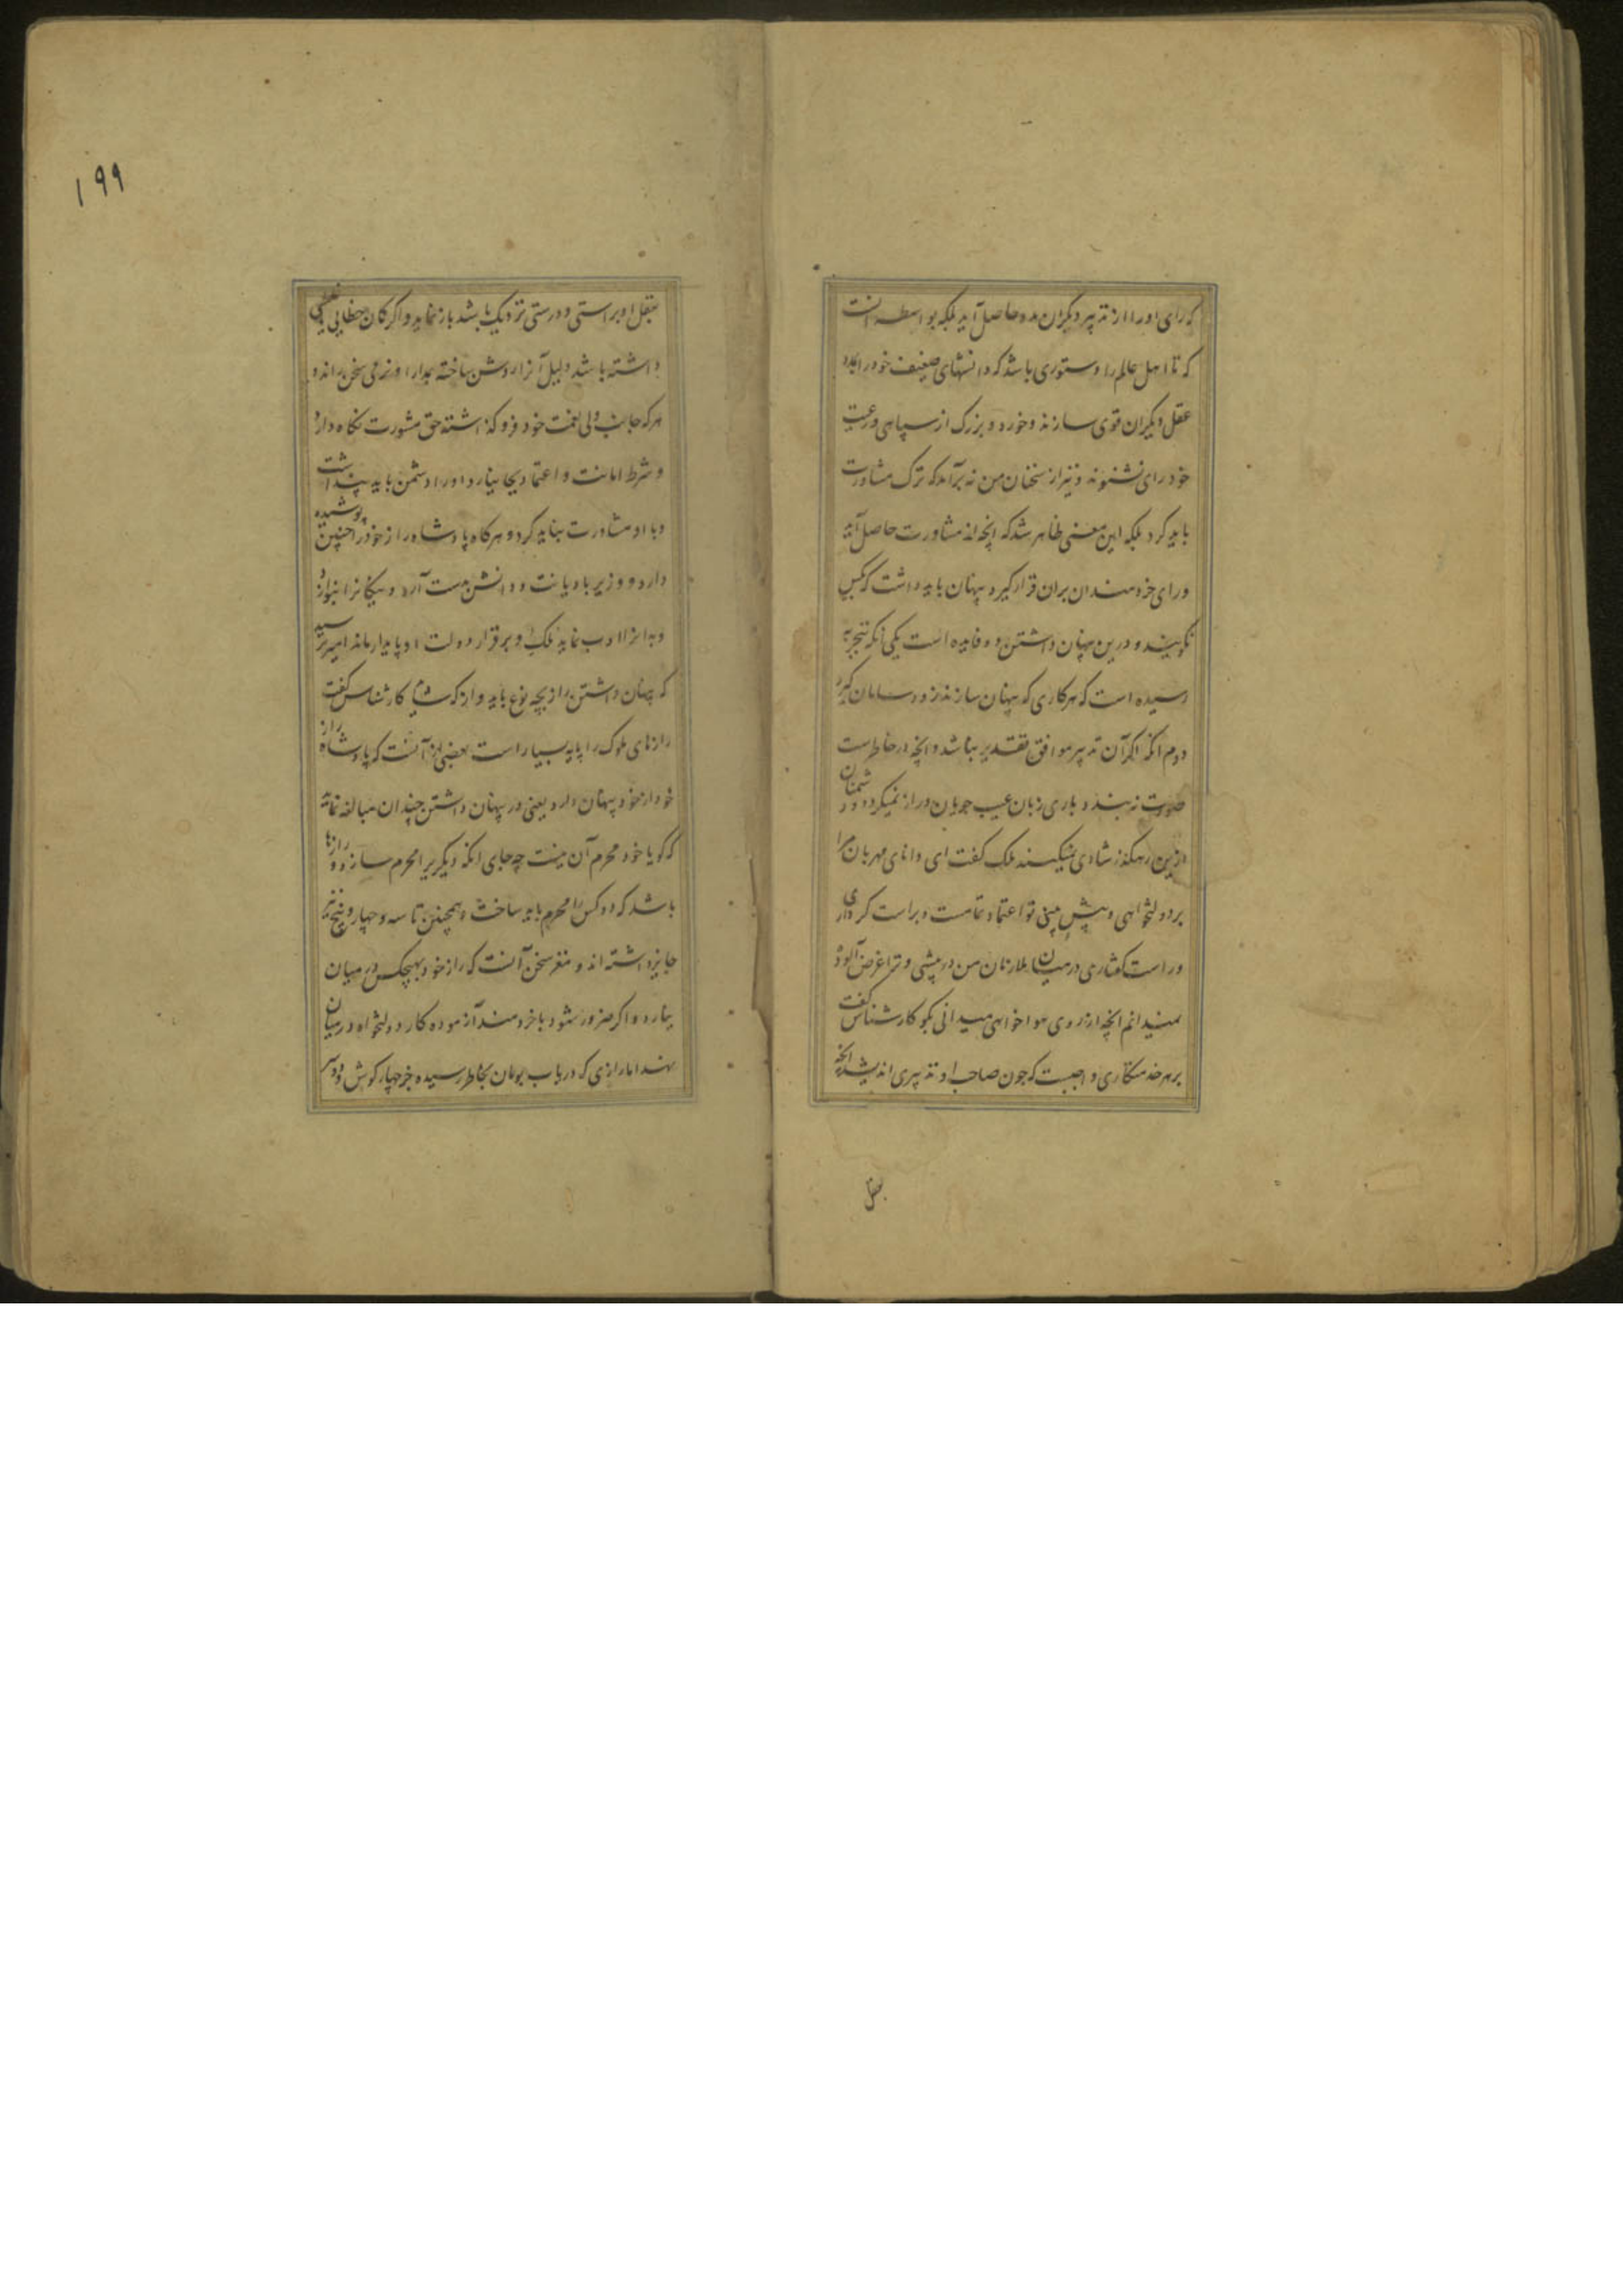 که رای او را از تدبیر دیگران مدد حاصل آید بلکه بواسطه آنست
که تا اهل عالم را دستوری باشد که دانشهای ضعیف خود را بمدد
عقل دیگران قوی سازند و خورد و بزرگ از سپاهی و رعیت
خود رای نشنوند و نیز از سخنان من نه برآمد که ترک مشاورت
باید کرد بلکه این معنی ظاهر شد که آنچه از مشاورت حاصل آید
و رای خردمندان بران قرار گیرد پنهان باید داشت که بکس
نگویند و درین پنهان داشتن دو فایده است یکی آنکه بتجربه
رسیده است که هر کاری که پنهان سازند زود سامان گیرد
دوم آنکه اگر آن تدبیر موافق تقدیر نباشد و آنچه در خاطرست
صورت نه بندد باری زبان عیب جویان دراز نمیگردد و دشمنان
ازین رهگذر شادی نمیکنند ملک گفت ای دانای مهربان مرا
بر دولتخواهی و پیش بینی تو اعتماد تمامست و براست کرداری
و راست گفتاری در میان ملازمان من در پیشی و ترا غرض آلود
نمیدانم آنچه از روی هواخواهی میدانی بگو کارشناس گفت
بر هر خدمتگاری واجبست که چون صاحب او تدبیری اندیشد آنچه
بعقل
۱۹۹
بعقل او براستی و درستی نزدیک باشد باز نماید و اگر گمان خطایی
داشته باشد دلیل آنرا روشن ساخته بمدارا و نرمی سخن راند و
هر که جانب ولی نعمت خود فرو گذاشته حق مشورت نگاه ندارد
و شرط امانت و اعتماد بجا نیارد او را دشمن باید پنداشت
و با او مشاورت نباید کرد و هرگاه پادشاه راز خود را چنین پوشیده
دارد و وزیر با دیانت و دانش بدست آرد و نیکانرا بنوازد
و بدانرا ادب نماید ملک او برقرار و دولت او پایدار ماند امیر پرسید
که پنهان داشتن راز بچه نوع باید و از که شاید کارشناس گفت
رازهای ملوک را پایه بسیار است بعضی از آنست که پادشاه راز
خود از خود پنهان دارد یعنی در پنهان داشتن چندان مبالغه نماید
که گویا خود محرم آن نیست چه جای آنکه دیگریرا محرم سازد و رازها
باشد که دو کس را محرم باید ساخت و همچنین تا سه و چهار و پنج نیز
جایز داشته اند و مغز سخن آنست که راز خود بهیچکس در میان
نیارد و اگر ضرور شود با خردمند آزموده کار دولتخواه در میان
نهد اما رازی که در باب بومان بخاطر رسیده جز چهار گوش و دو سر